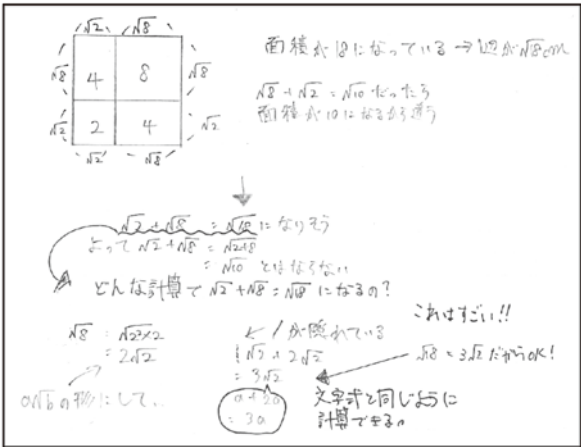 √2 √8
√8 4 8 √8
√2 2 4 √2
√2 √8
面積が18になっている → 辺が√18cm
√8+√2=√10だったら
面積が10になるから違う
√2+√8=√18になりそう
よって√2+√8=√2+8
=√10とはならない
どんな計算で√2+√8=√18になるの?
√8=√2²×2
=2√2
a√bの形にして、
1が隠れている
1√2+2√2
=3√2
a+2a
=3a
これはすごい!!
√18=3√2だからOK!
文字式と同じように
計算できる。